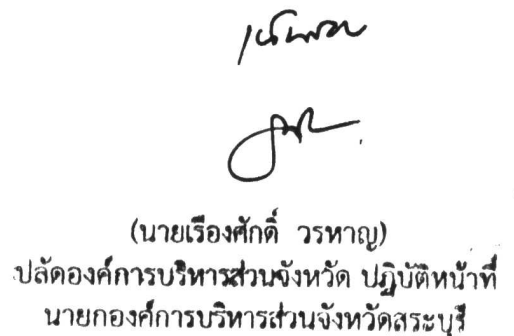 เห็นชอบ
(นายเรืองศักดิ์ วรหาญ)
ปลัดองค์การบริหารส่วนจังหวัด ปฏิบัติหน้าที่
นายกองค์การบริหารส่วนจังหวัดสระบุรี